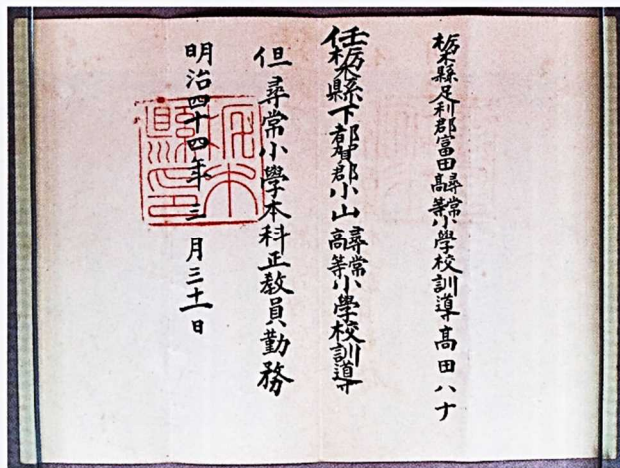 栃木縣足利郡富田尋常高等小學校訓導高田ハナ
任栃木縣下都賀郡小山尋常高等小學校訓導
但尋常小學本科正教員勤務
明治四十四年三月三十一日
栃木縣印